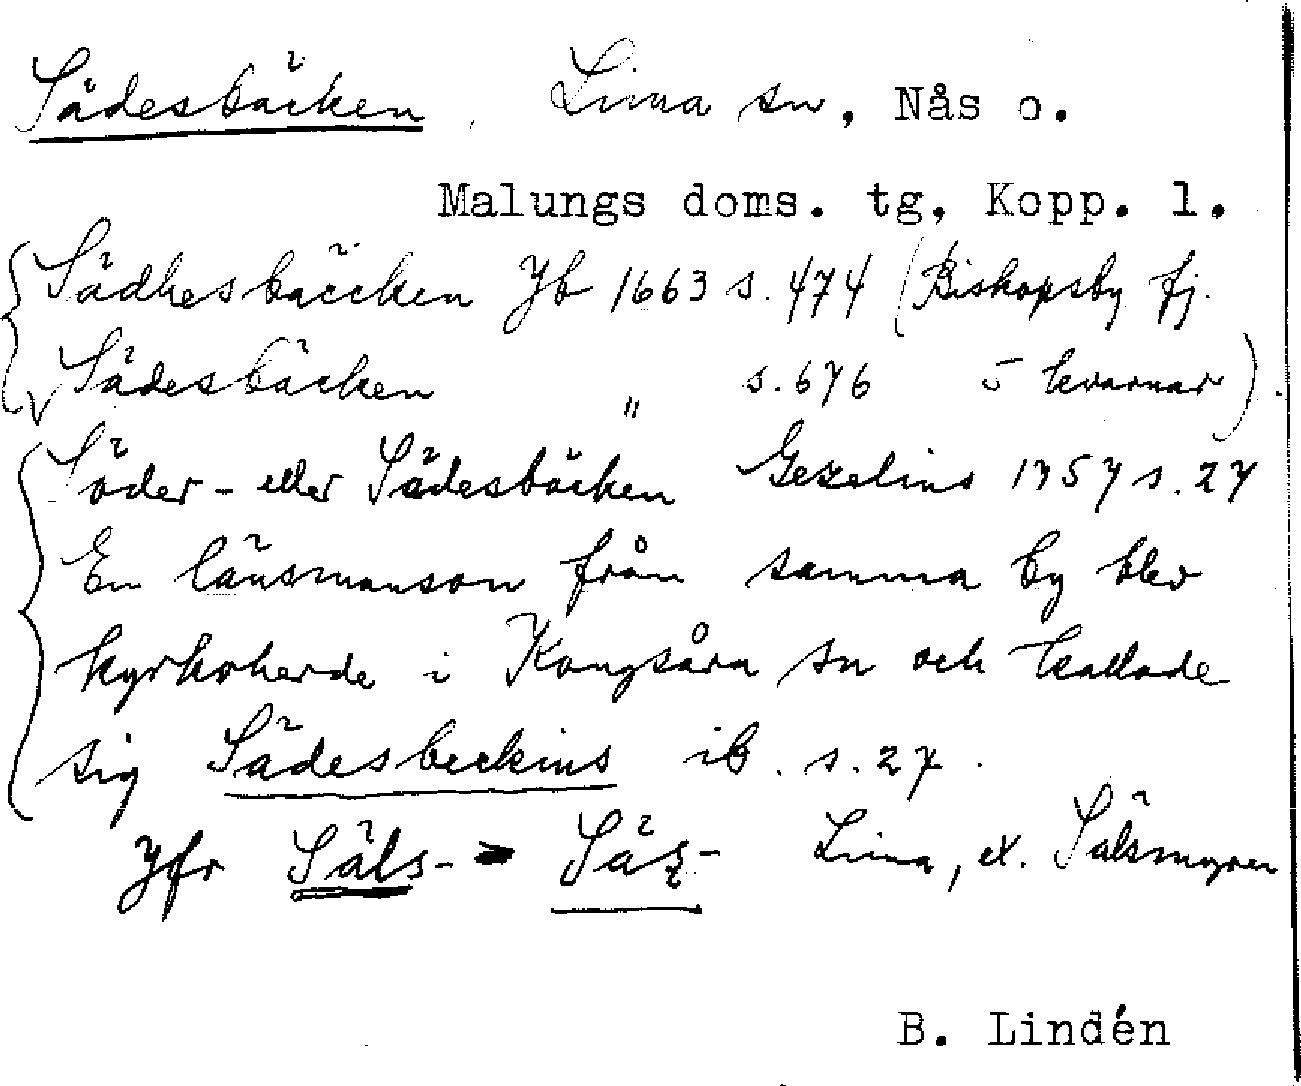 Sädesbäcken, Lima sn, Nås o.
Malungs doms. tg, Kopp. l.
Sädhesbäccken Jb 1663 s. 474 (Biskopsby fj.
Sädesbäcken " s. 676 5 kvarnar).
Söder- eller Sädesbäcken Gezelius 1757 s. 27
En länsmanson från samma by blev
kyrkoherde i Kongsåra sn och kallade
sig Sädesbeckius ib. s. 27.
Jfr Säls- Säz- Lima, ex. Sälsmyren
B. Lindén